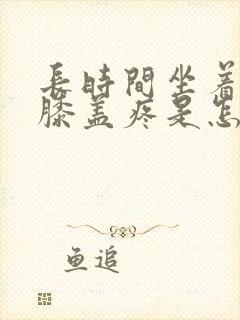 長時間坐着
膝盖疼是怎
鱼追